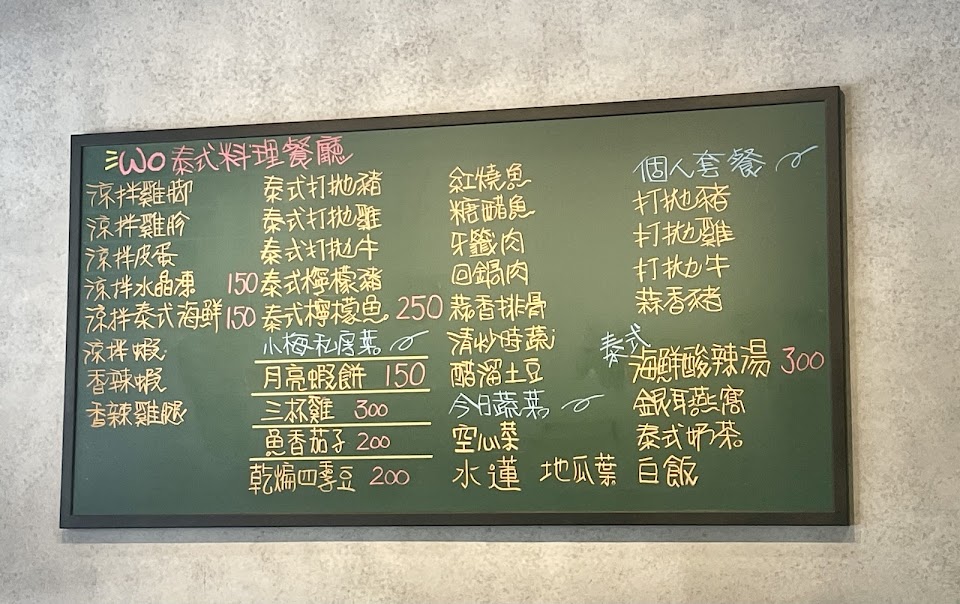 Wo 泰式料理餐廳
涼拌雞腳
涼拌雞胗
涼拌皮蛋
涼拌水晶凍 150
涼拌泰式海鮮 150
涼拌蝦
香辣蝦
香辣雞腿
泰式打拋豬
泰式打拋雞
泰式打拋牛
泰式檸檬豬
泰式檸檬魚 250
小梅私房菜
月亮蝦餅 150
三杯雞 300
魚香茄子 200
乾煸四季豆 200
紅燒魚
糖醋魚
牙籤肉
回鍋肉
蒜香排骨
清炒時蔬
醋溜土豆
今日蔬菜
空心菜
水蓮 地瓜葉 白飯
個人套餐
打拋豬
打拋雞
打拋牛
蒜香豬
泰式
海鮮酸辣湯 300
銀耳燕窩
泰式奶茶